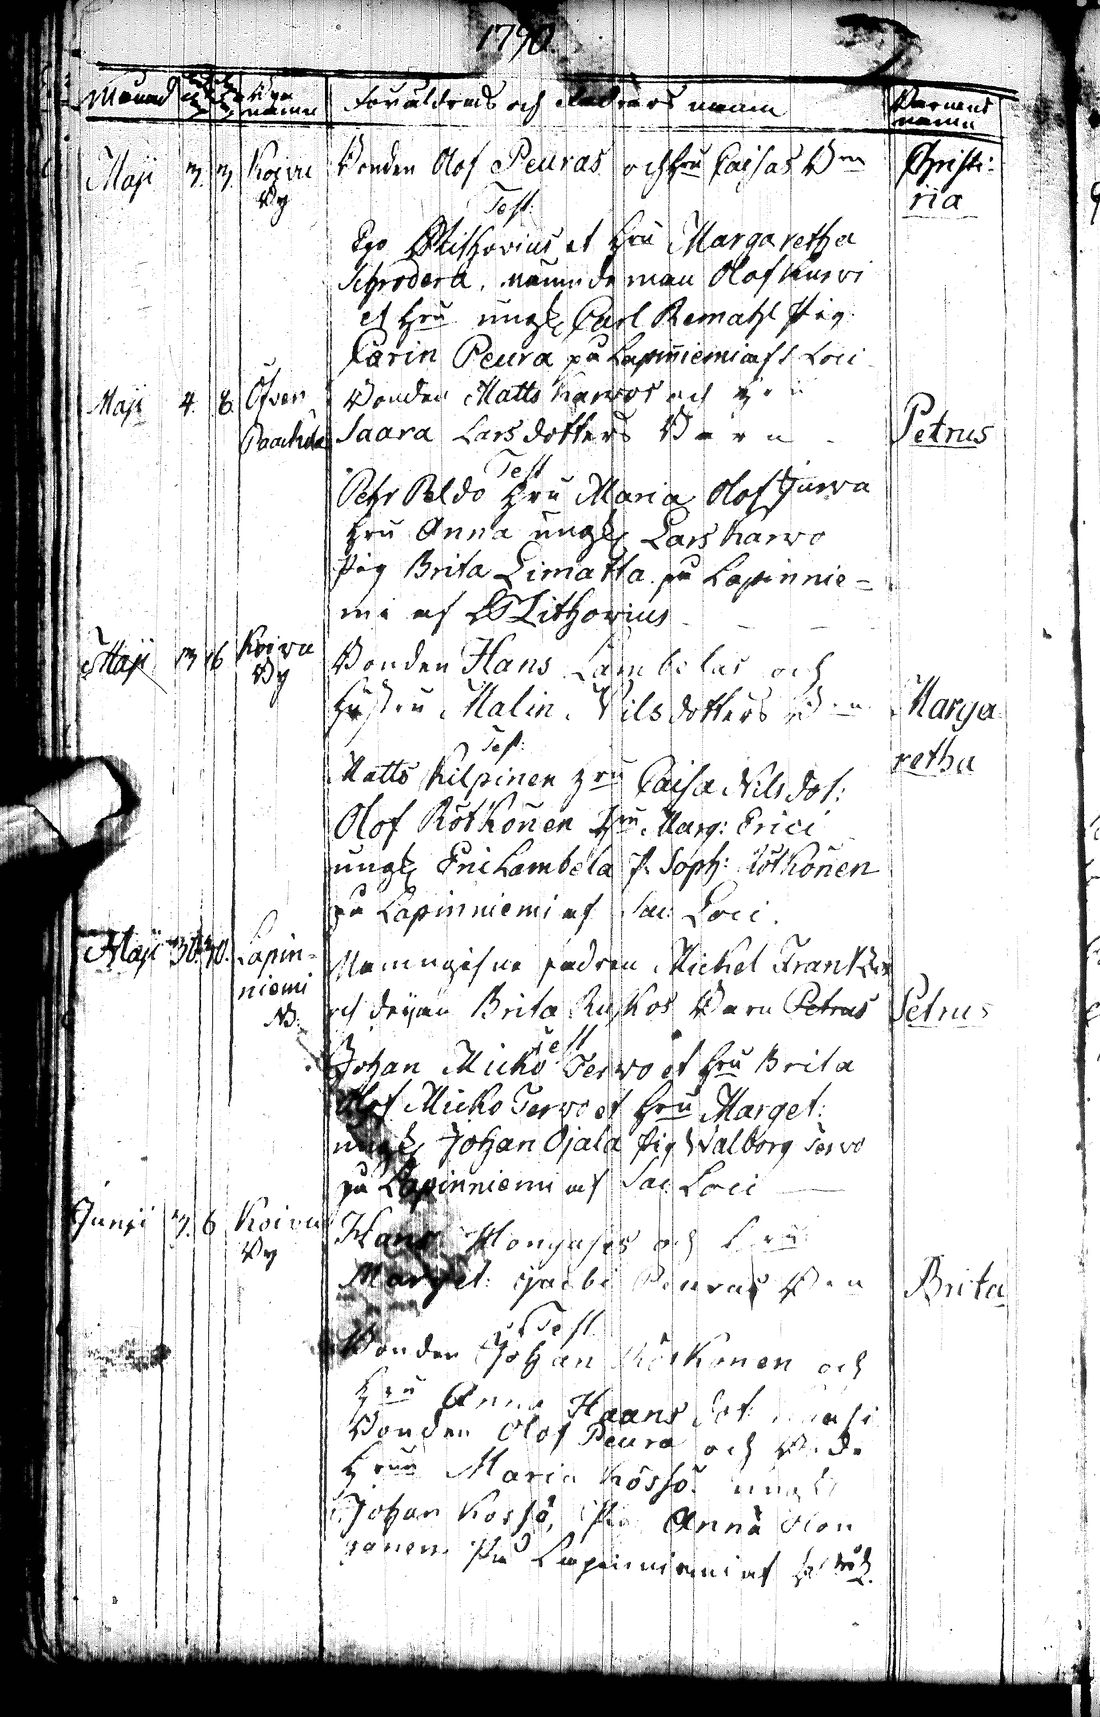 1790.
Månad
Bya namn
Föräldrars och Faddrars namn
Barnens namn
Maji 3. 3. Koivu By
Bonden Olof Peuras och Hru Caisas Bn
Christi:
ria
Test:
Ego Lithovius et Hru Margaretha
Schrodera, nämndeman Olof Kurvi
et Hru ungk Carl Remahl Pig
Carin Peura på Lapinniemi af S. Loci
Maji 4. 8. Öfver Paakkola
Bonden Matts Karvos och
Saara Larsdotters Barn
Petrus
Test
Petr Peldo Hru Maria Olof Jurva
Hru Anna ungk Lars Karvo
Pig Brita Limatta på Lapinnie=
mi af Lithovius
Maji 13 16 Koivu By
Bonden Hans Lambelas och
Hustru Malin Nilsdotters Bn
Marga
retha
Test:
Matts Kilpinen Hru Caisa Nilsdot:
Olof Rötkönen Hru Marg: Erici
ungk Eric Lambela P. Soph: Rötkönen
på Lapinniemi af Sac Loci.
Maji 30. 30. Lapin=
niemi
NB.
Mickel Frantz
och Brita Ruskos Barn Petrus
Petrus
Test
Johan Micko Tervo et Hru Brita
Olof Micko Tervo et Hru Marget:
ungk Johan Ojala Pig Walborg Tervo
på Lapinniemi af Sac Loci
Junii 3. 6 Koivu By
Hans och Hru
Marget: Peuras Bn
Brita
Test
Bonden Johan Rötkönen och
Hru Anna Haansdot
Bonden Olof Peura och
Hru Maria Kössö ungk
Johan Kossö, Pig Anna
på Lapinniemi af